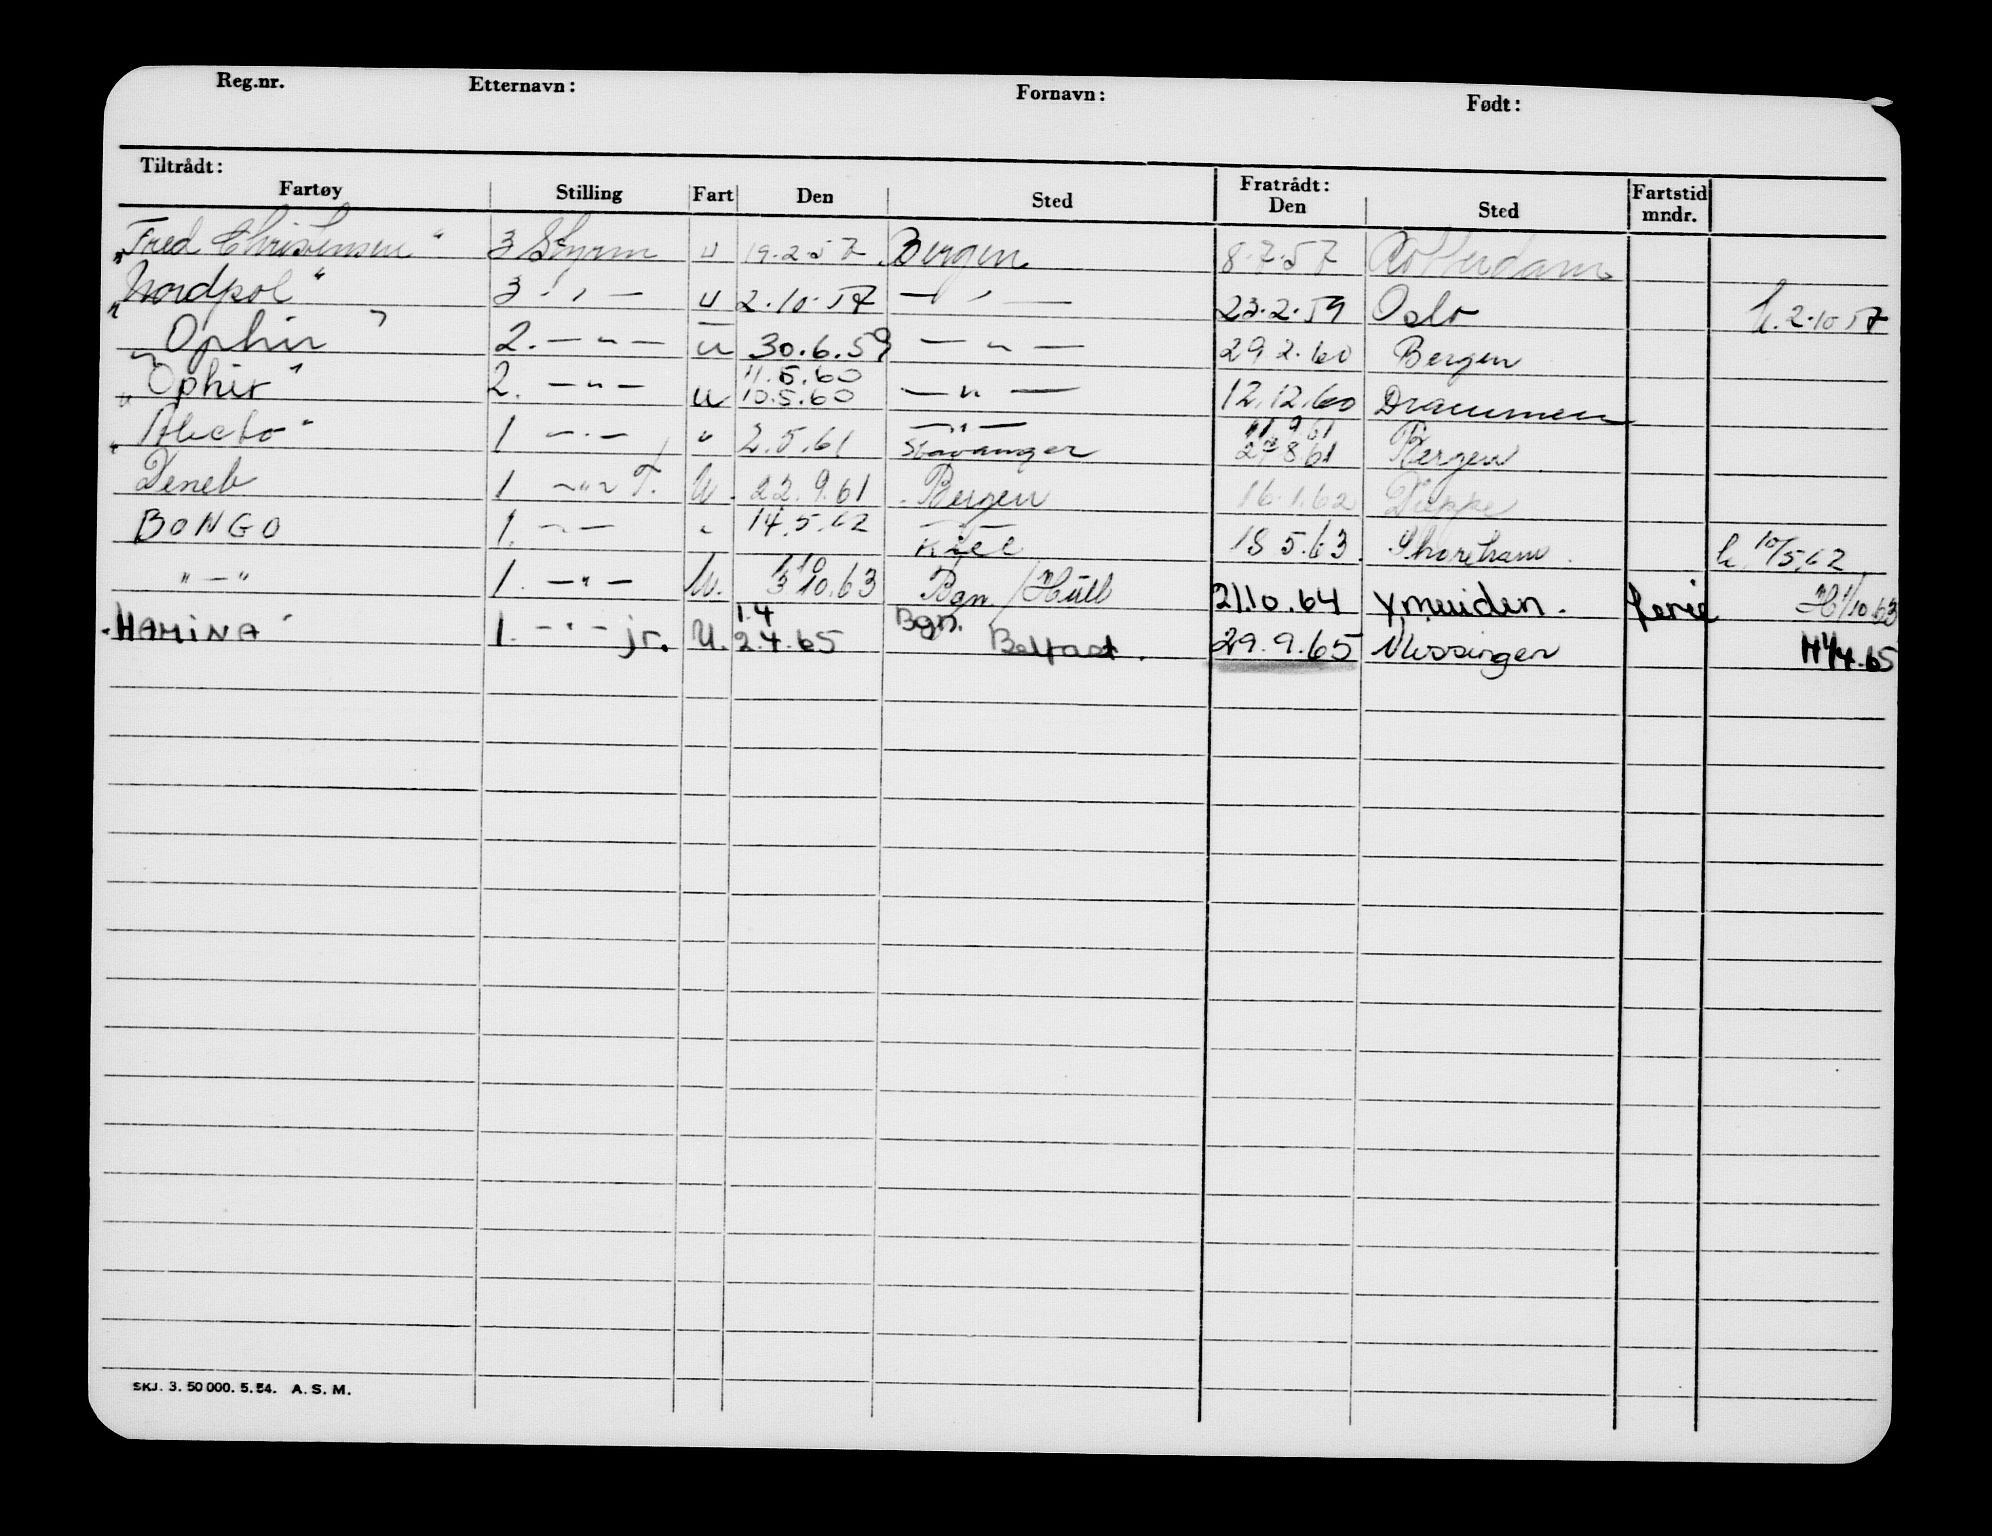 Reg.nr. Etternavn: Fornavn: Født:
Tiltrådt: Fratrådt:
Fartøy Stilling Fart Den Sted Den Sted Fartstid mndr.
"Fred Christensen" 3 Styrm u 19.2.57 Bergen 8.7.57 Rotterdam
"Nordpol" 3 - " - u 2.10.57 — " — 23.2.59 Oslo h. 2.10.57
"Ophir" 2. — " — u 30.6.59 — " — 29 2.60 Bergen
11.5.60
"Ophir" 2. — " — u 10.5.60 — " — 12.12.60 Drammen
— " — 11 9 61
"Alecto" 1 — " — " 2.5.61 Stavanger 27 8 61 Bergen
Deneb 1 — " — T. U. 22.9.61 Bergen 16.1.62 Dieppe
BONGO 1. — " — " 14.5.62 Kiel 18 5.63. Shoreham. h. 10/5.62
" — " 1. — " — U. 3 10.63 Bgn / Hull 21.10.64 Ymuiden. ferie H 1/10.63
1.4 Bgn.
"HAMINA" 1. — " — jr. U. 2.4.65 Belfast. 29.9.65 Vlissingen H 1/4.65
SKJ. 3. 50 000. 5. 54. A. S. M.